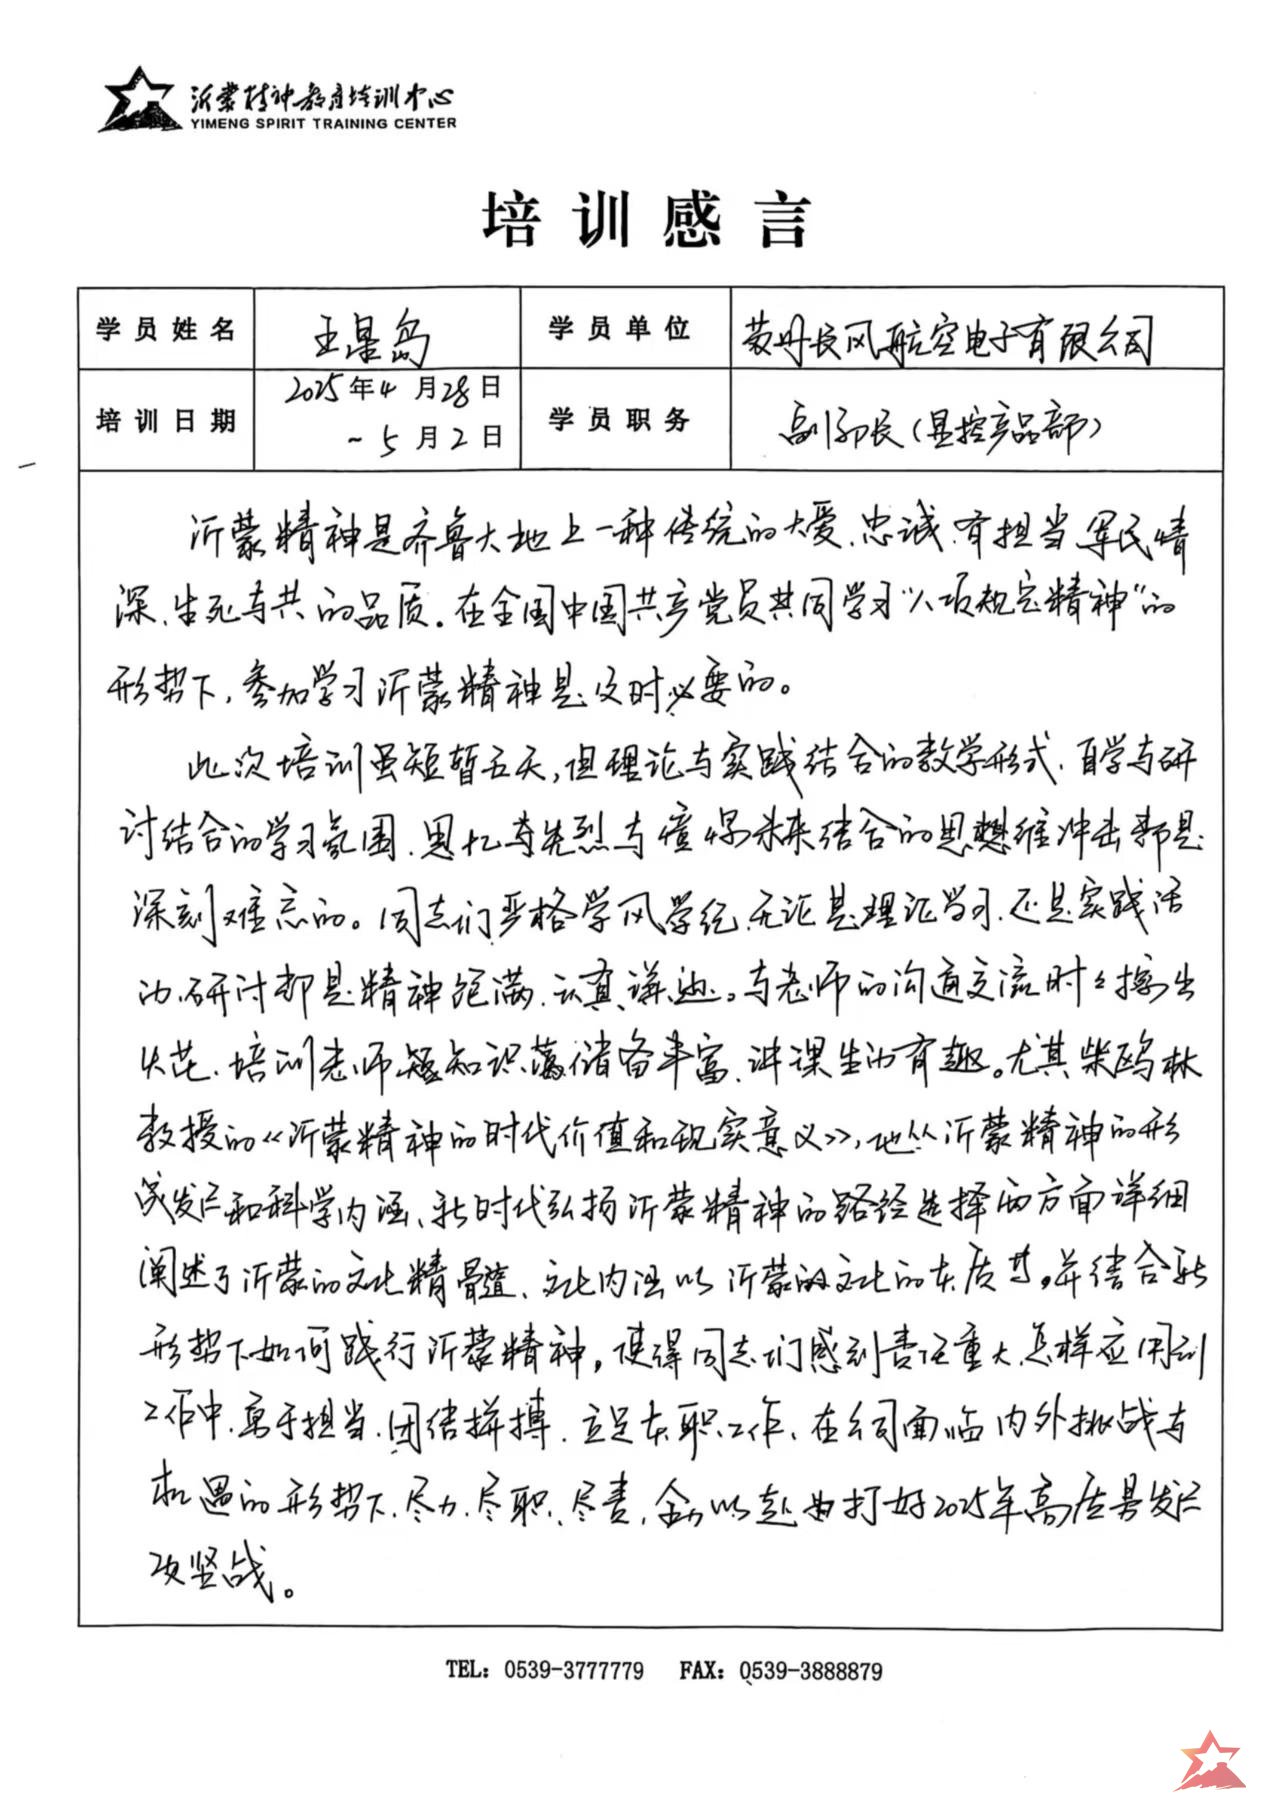 沂蒙精神教育培训中心
YIMENG SPIRIT TRAINING CENTER
培训感言
学员姓名 王星岛 学员单位 长风航空电子有限公司
培训日期 2025年4月28日 ~5月2日 学员职务 副部长(显控产品部)
沂蒙精神是齐鲁大地上一种传统的大爱、忠诚、有担当、军民情
深、生死与共的品质。在全国中国共产党员共同学习“八项规定精神”的
形势下,参加学习沂蒙精神是及时必要的。
此次培训虽短暂五天,但理论与实践结合的教学形式、自学与研
讨结合的学习氛围、思忆先烈与憧憬未来结合的思维冲击都是
深刻难忘的。同志们严格学风学纪,无论是理论学习、还是实践活
动、研讨都是精神饱满、认真。与老师的沟通交流时时擦出
火花、培训老师知识储备丰富、讲课生动有趣。尤其柴鸥林
教授的《沂蒙精神的时代价值和现实意义》,他从沂蒙精神的形
成发展和科学内涵、新时代弘扬沂蒙精神的路径选择两方面详细
阐述了沂蒙的文化精髓、文化内涵以沂蒙的文化的本质等。并结合新
形势下如何践行沂蒙精神,使得同志们感到责任重大,怎样应用到
工作中,勇于担当、团结拼搏、立足本职工作、在公司面临内外挑战与
机遇的形势下,尽力、尽职、尽责,全力以赴打好2025年高质量发展
攻坚战。
TEL: 0539-3777779 FAX: 0539-3888879